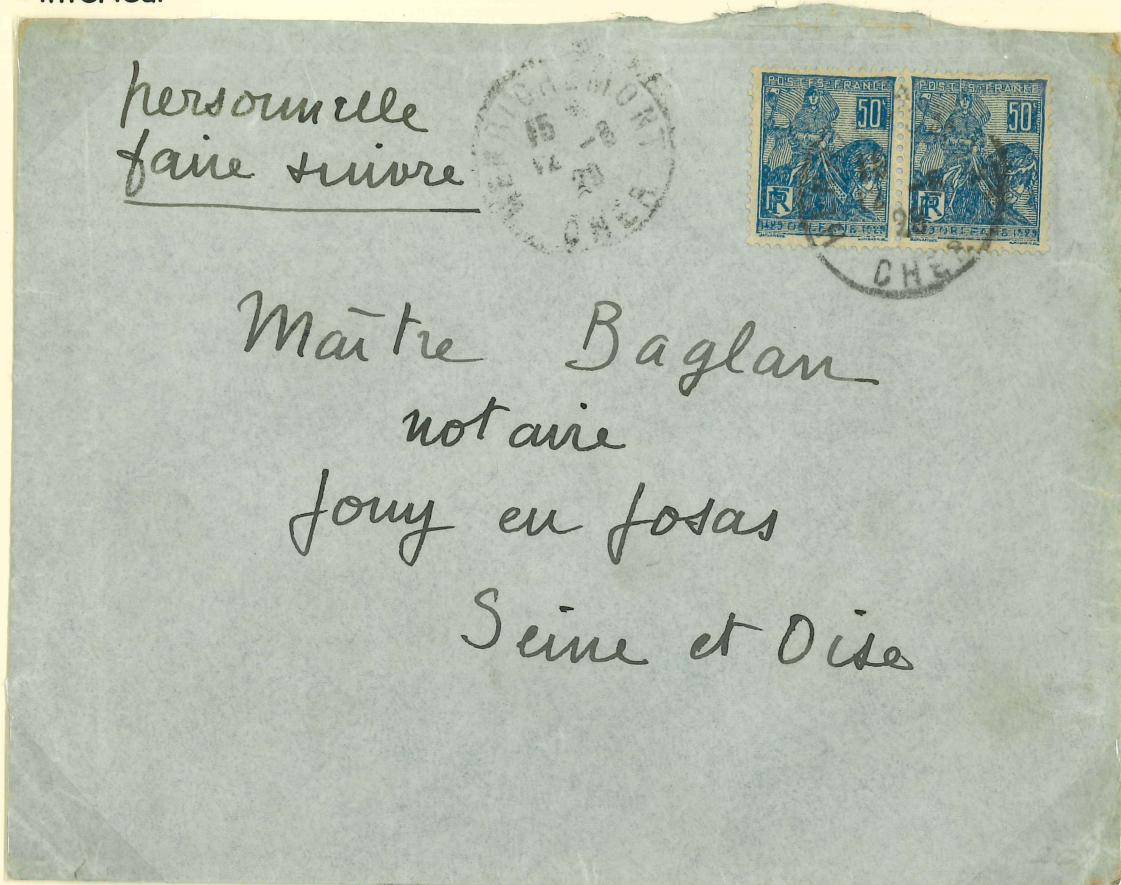 personnelle
faire suivre
HENRICHEMONT
15 -8
12
29
CHER
POSTES-FRANCE
50c
RF
1429 ORLEANS 1929
POSTES-FRANCE
50c
RF
1429 ORLEANS 1929
CHER
Maître Baglan
notaire
Jouy en Josas
Seine et Oise